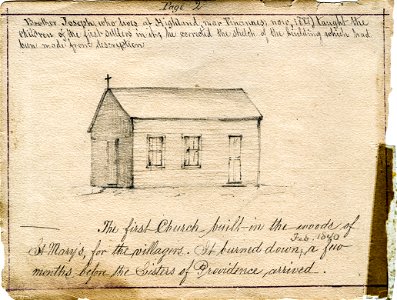 Page 2
Brother Joseph, who lives at Highland, near Vincennes, now, 1847, taught the
children of the first settlers in it; he corrected the sketch of the building which had
been made from description
The first Church built in the woods of
Feb. 1840
St Mary's, for the villagers. It burned down, a few
months before the Sisters of Providence arrived.